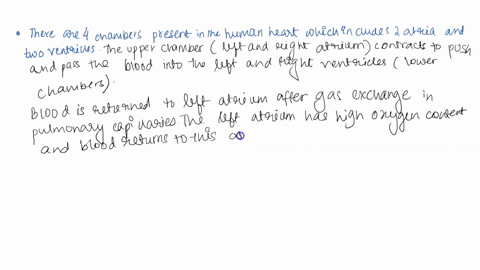 • There are 4 chambers present in the human heart which includes 2 atria and
two ventricles. The upper chamber (left and right atrium) contracts to push
and pass the blood into the left and right ventricles (lower
chambers).
Blood is returned to left atrium after gas exchange in
pulmonary capillaries. The left atrium has high oxygen content
and blood returns to this